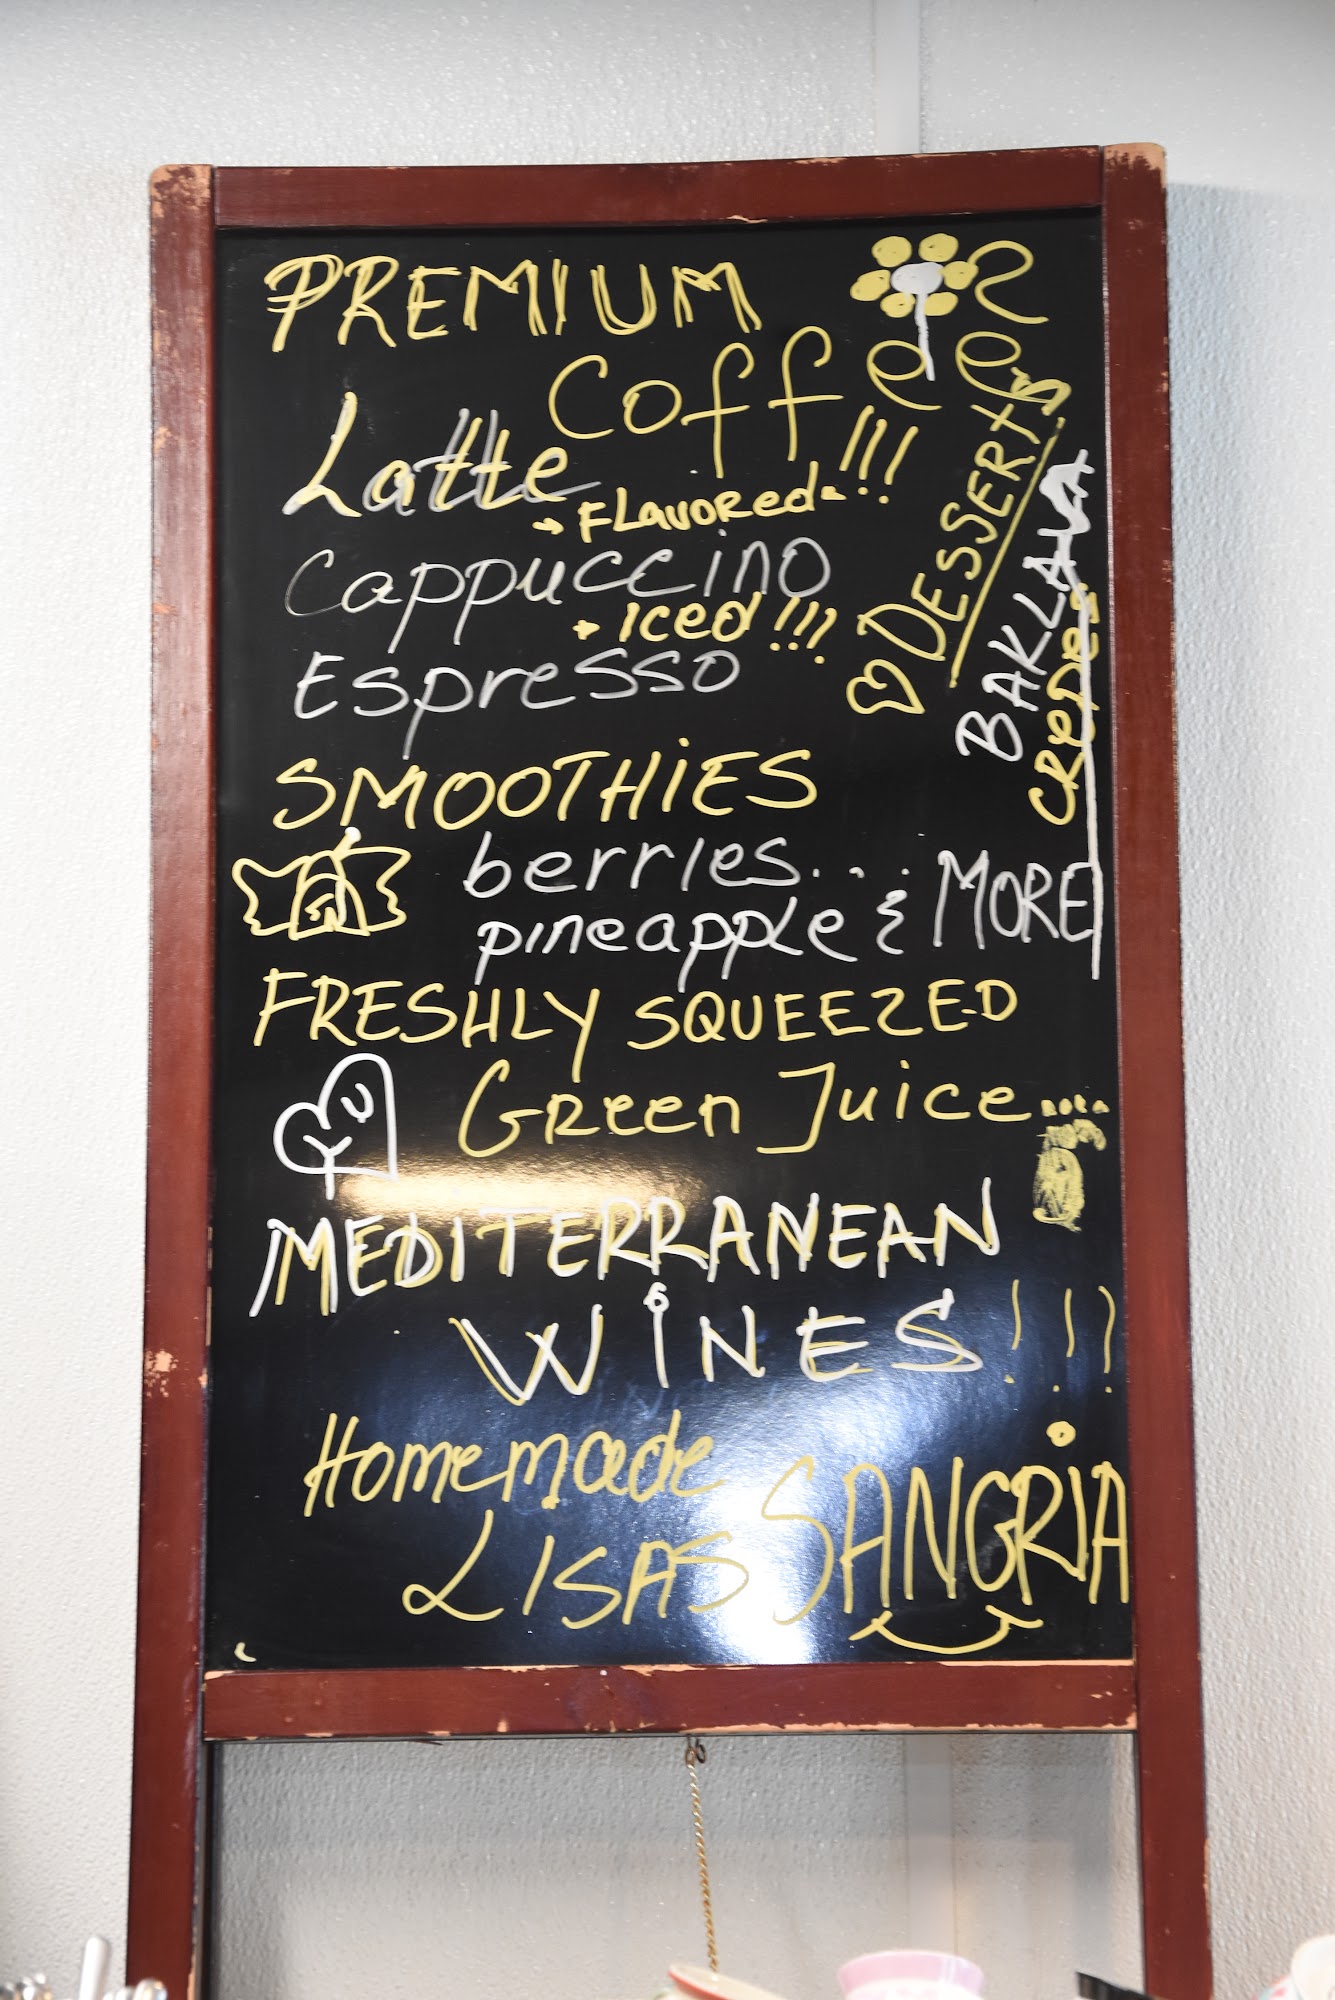 PREMIUM
Coffee
Latte
Flavored !!!
Cappuccino
+ Iced !!!
Espresso
DESSERTS
BAKLAVA
CREPES
& MORE
SMOOTHIES
berries...
pineapple
FRESHLY SQUEEZED
Green Juice
MEDITERRANEAN
WINES!!!
Homemade
LISAS SANGRIA